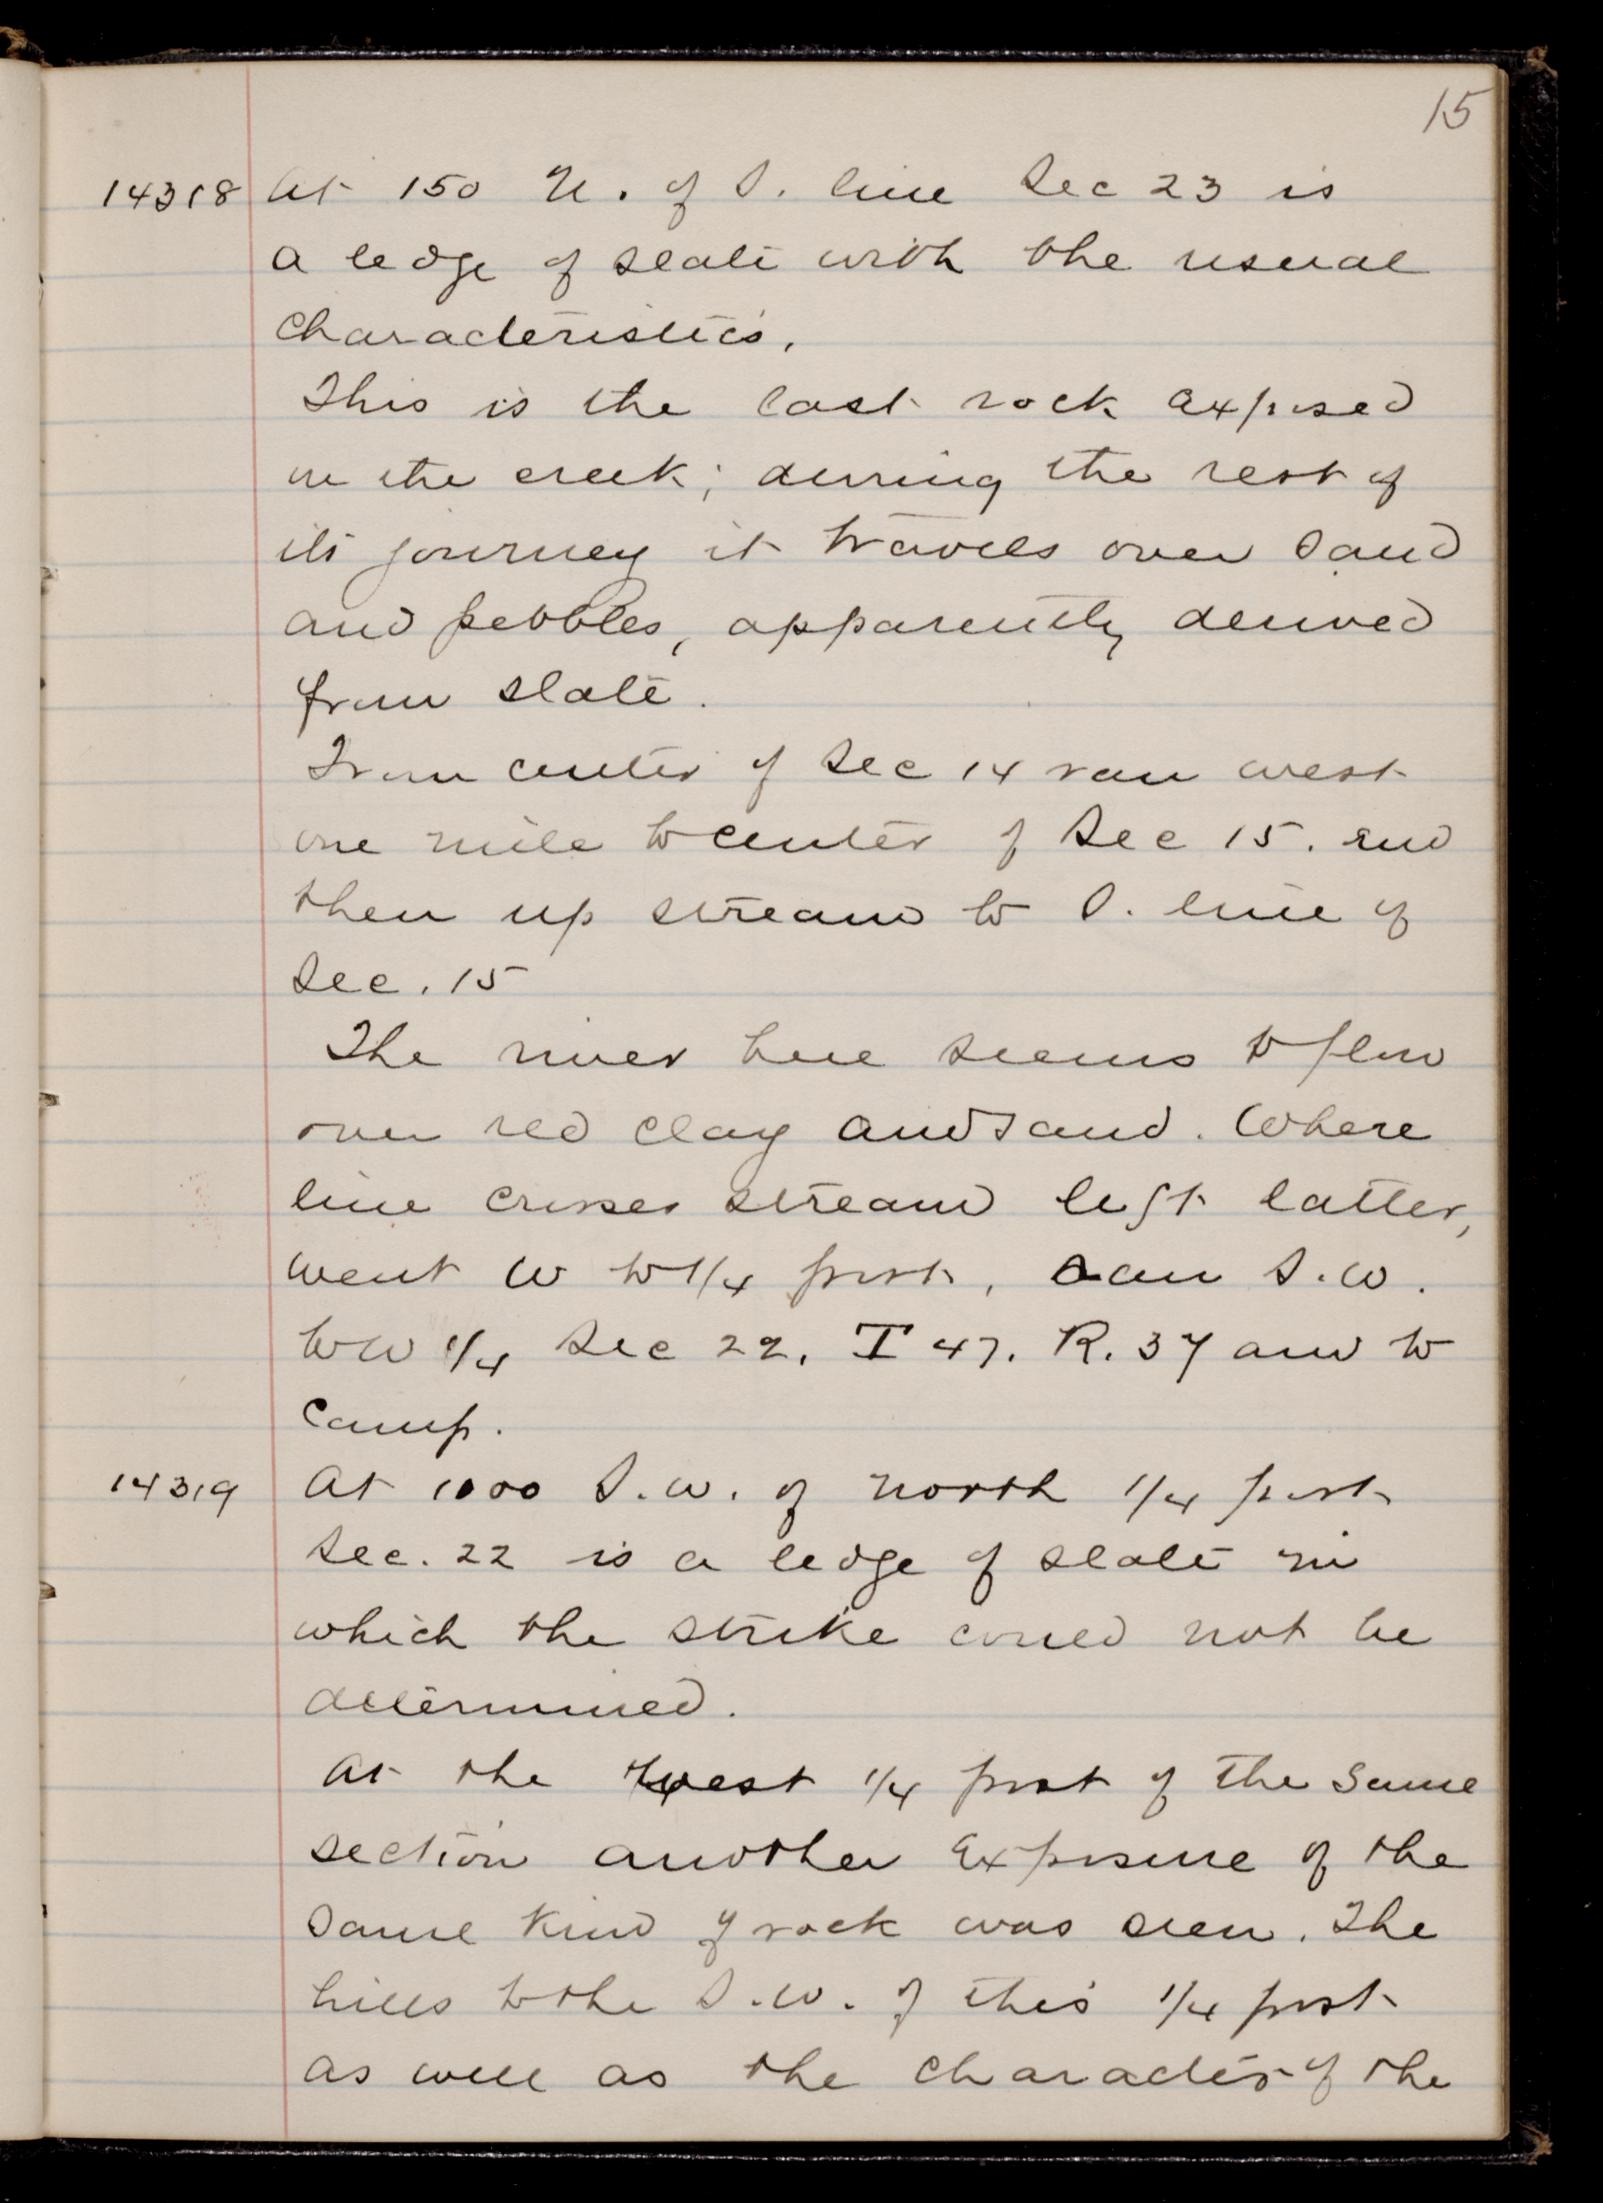 15
14318 At 150 N. of S. line Sec 23 is
a ledge of slate with the usual
characteristics.
This is the last rock exposed
in the creek; during the rest of
its journey it travels over sand
and pebbles, apparently derived
from slate.
From center of Sec 14 ran west
one mile to center of Sec 15. and
then up stream to S. line of
Sec. 15
The river here seems to flow
over red clay and sand. Where
line crosses stream left latter,
went W to 1/4 post, ran S.W.
to W 1/4 Sec 22, T 47. R. 37 and to
camp.
14319 At 1000 S.W. of North 1/4 post
Sec. 22 is a ledge of slate in
which the strike could not be
determined.
At the West 1/4 post of the same
section another exposure of the
same kind of rock was seen. The
hills to the S.W. of this 1/4 post
as well as the character of the